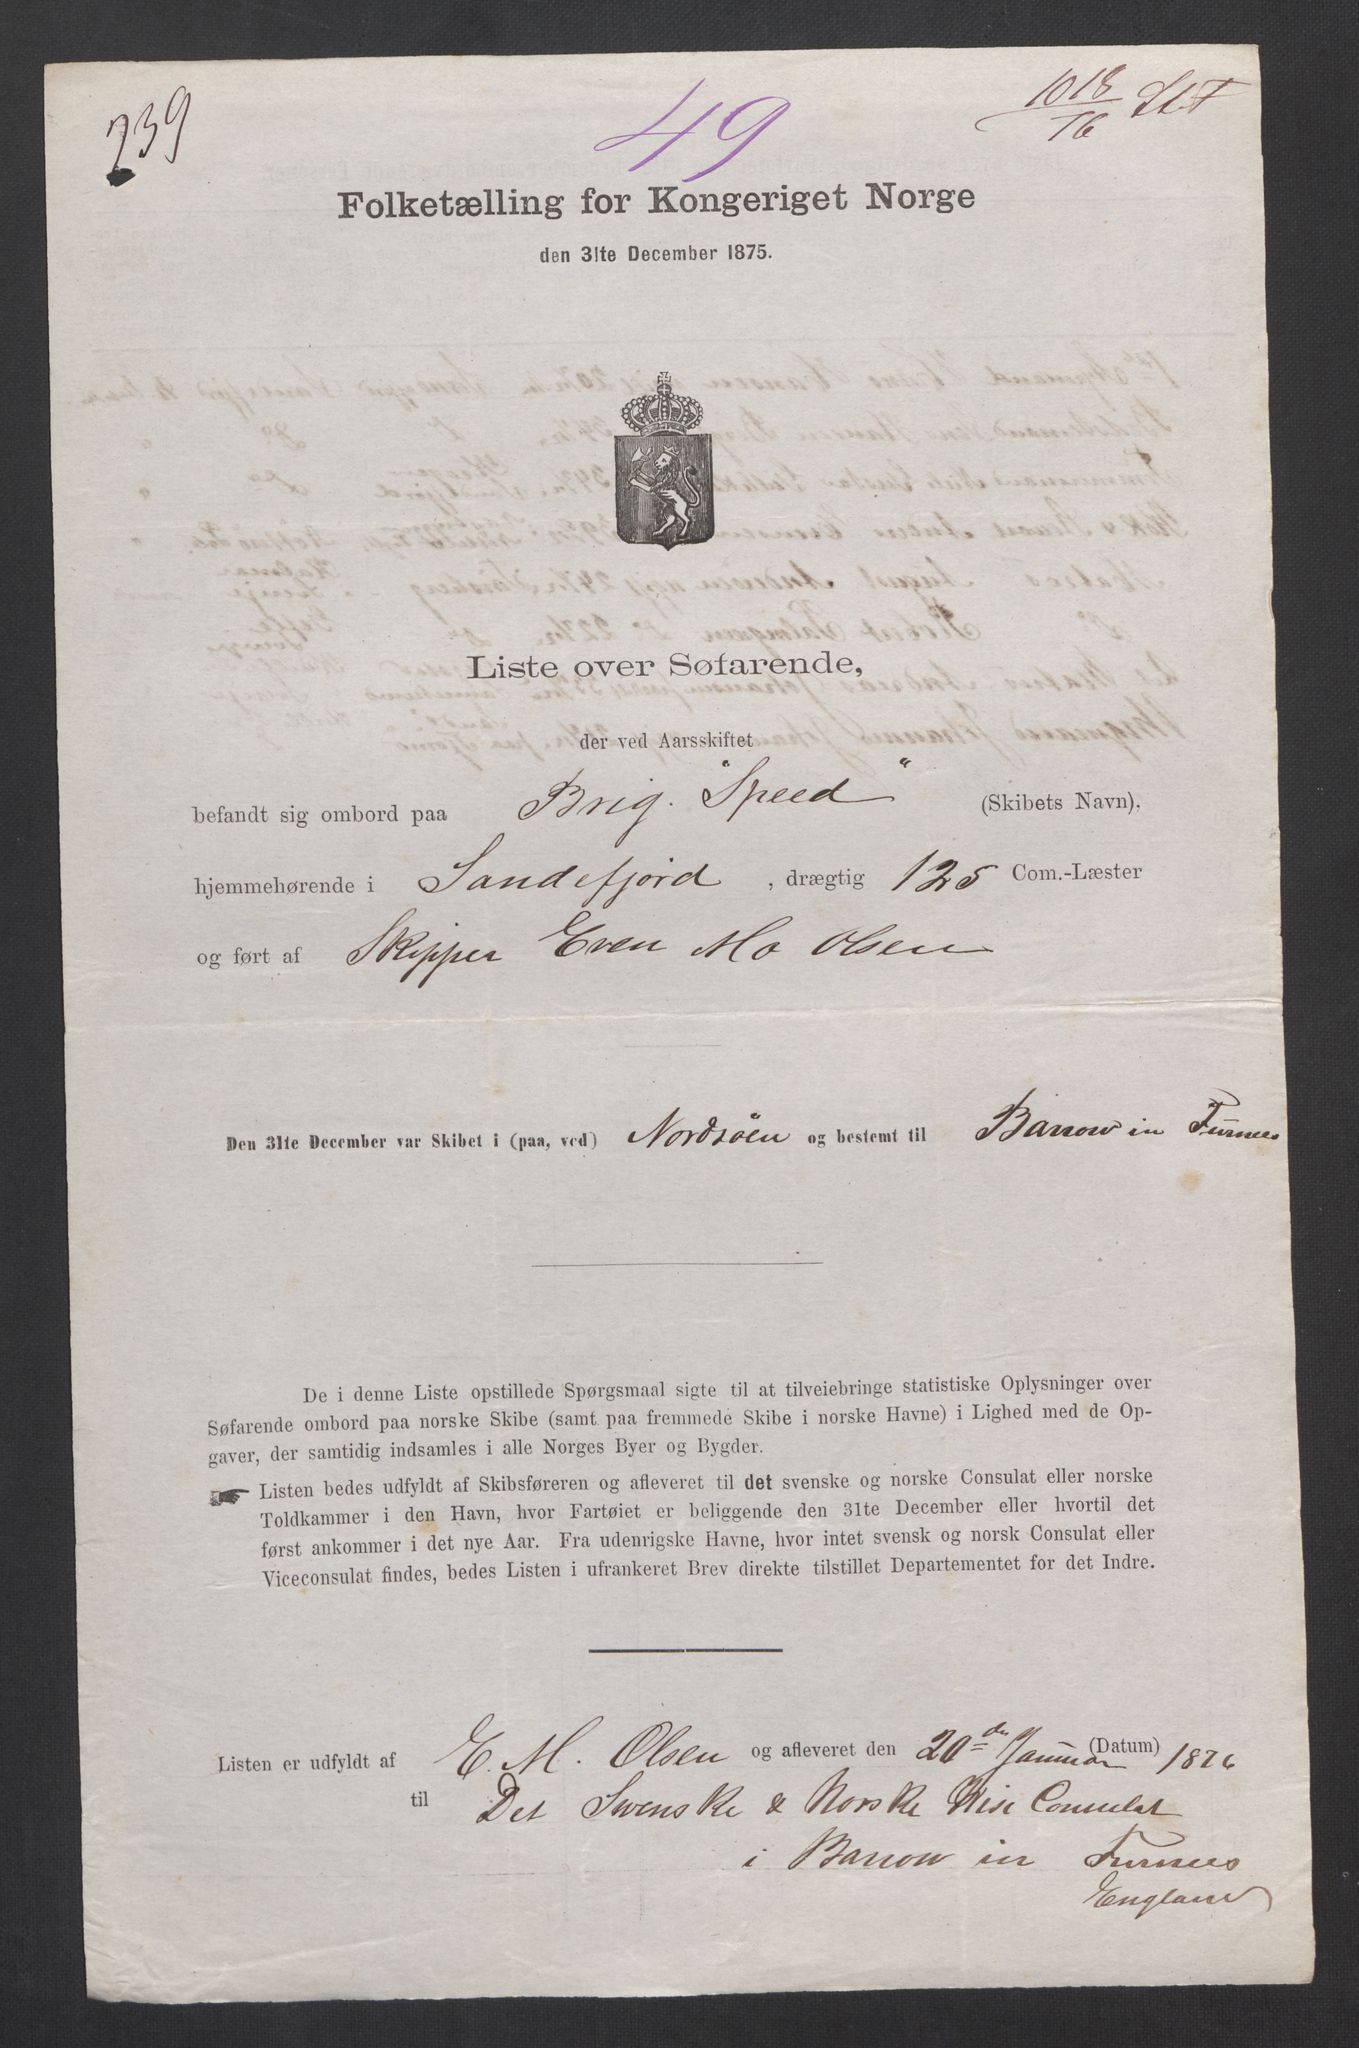 239
49
1018/76 StF
Folketælling for Kongeriget Norge
den 31te December 1875.
Liste over Søfarende,
der ved Aarsskiftet
befandt sig ombord paa Brig. "Speed" (Skibets Navn),
hjemmehørende i Sandefjord, drægtig 125 Com.-Læster
og ført af Skipper Even Mo Olsen
Den 31te December var Skibet i (paa, ved) Nordsöen og bestemt til Barrow in Furnees
De i denne Liste opstillede Spørgsmaal sigte til at tilveiebringe statistiske Oplysninger over
Søfarende ombord paa norske Skibe (samt paa fremmede Skibe i norske Havne) i Lighed med de Op-
gaver, der samtidig indsamles i alle Norges Byer og Bygder.
Listen bedes udfyldt af Skibsføreren og afleveret til det svenske og norske Consulat eller norske
Toldkammer i den Havn, hvor Fartøiet er beliggende den 31te December eller hvortil det
først ankommer i det nye Aar. Fra udenrigske Havne, hvor intet svensk og norsk Consulat eller
Viceconsulat findes, bedes Listen i ufrankeret Brev direkte tilstillet Departementet for det Indre.
Listen er udfyldt af E. M. Olsen og afleveret den 20de Januar (Datum) 1876
til Det Svenske & Norske Vise Consulat
i Barrow in Furnees
England